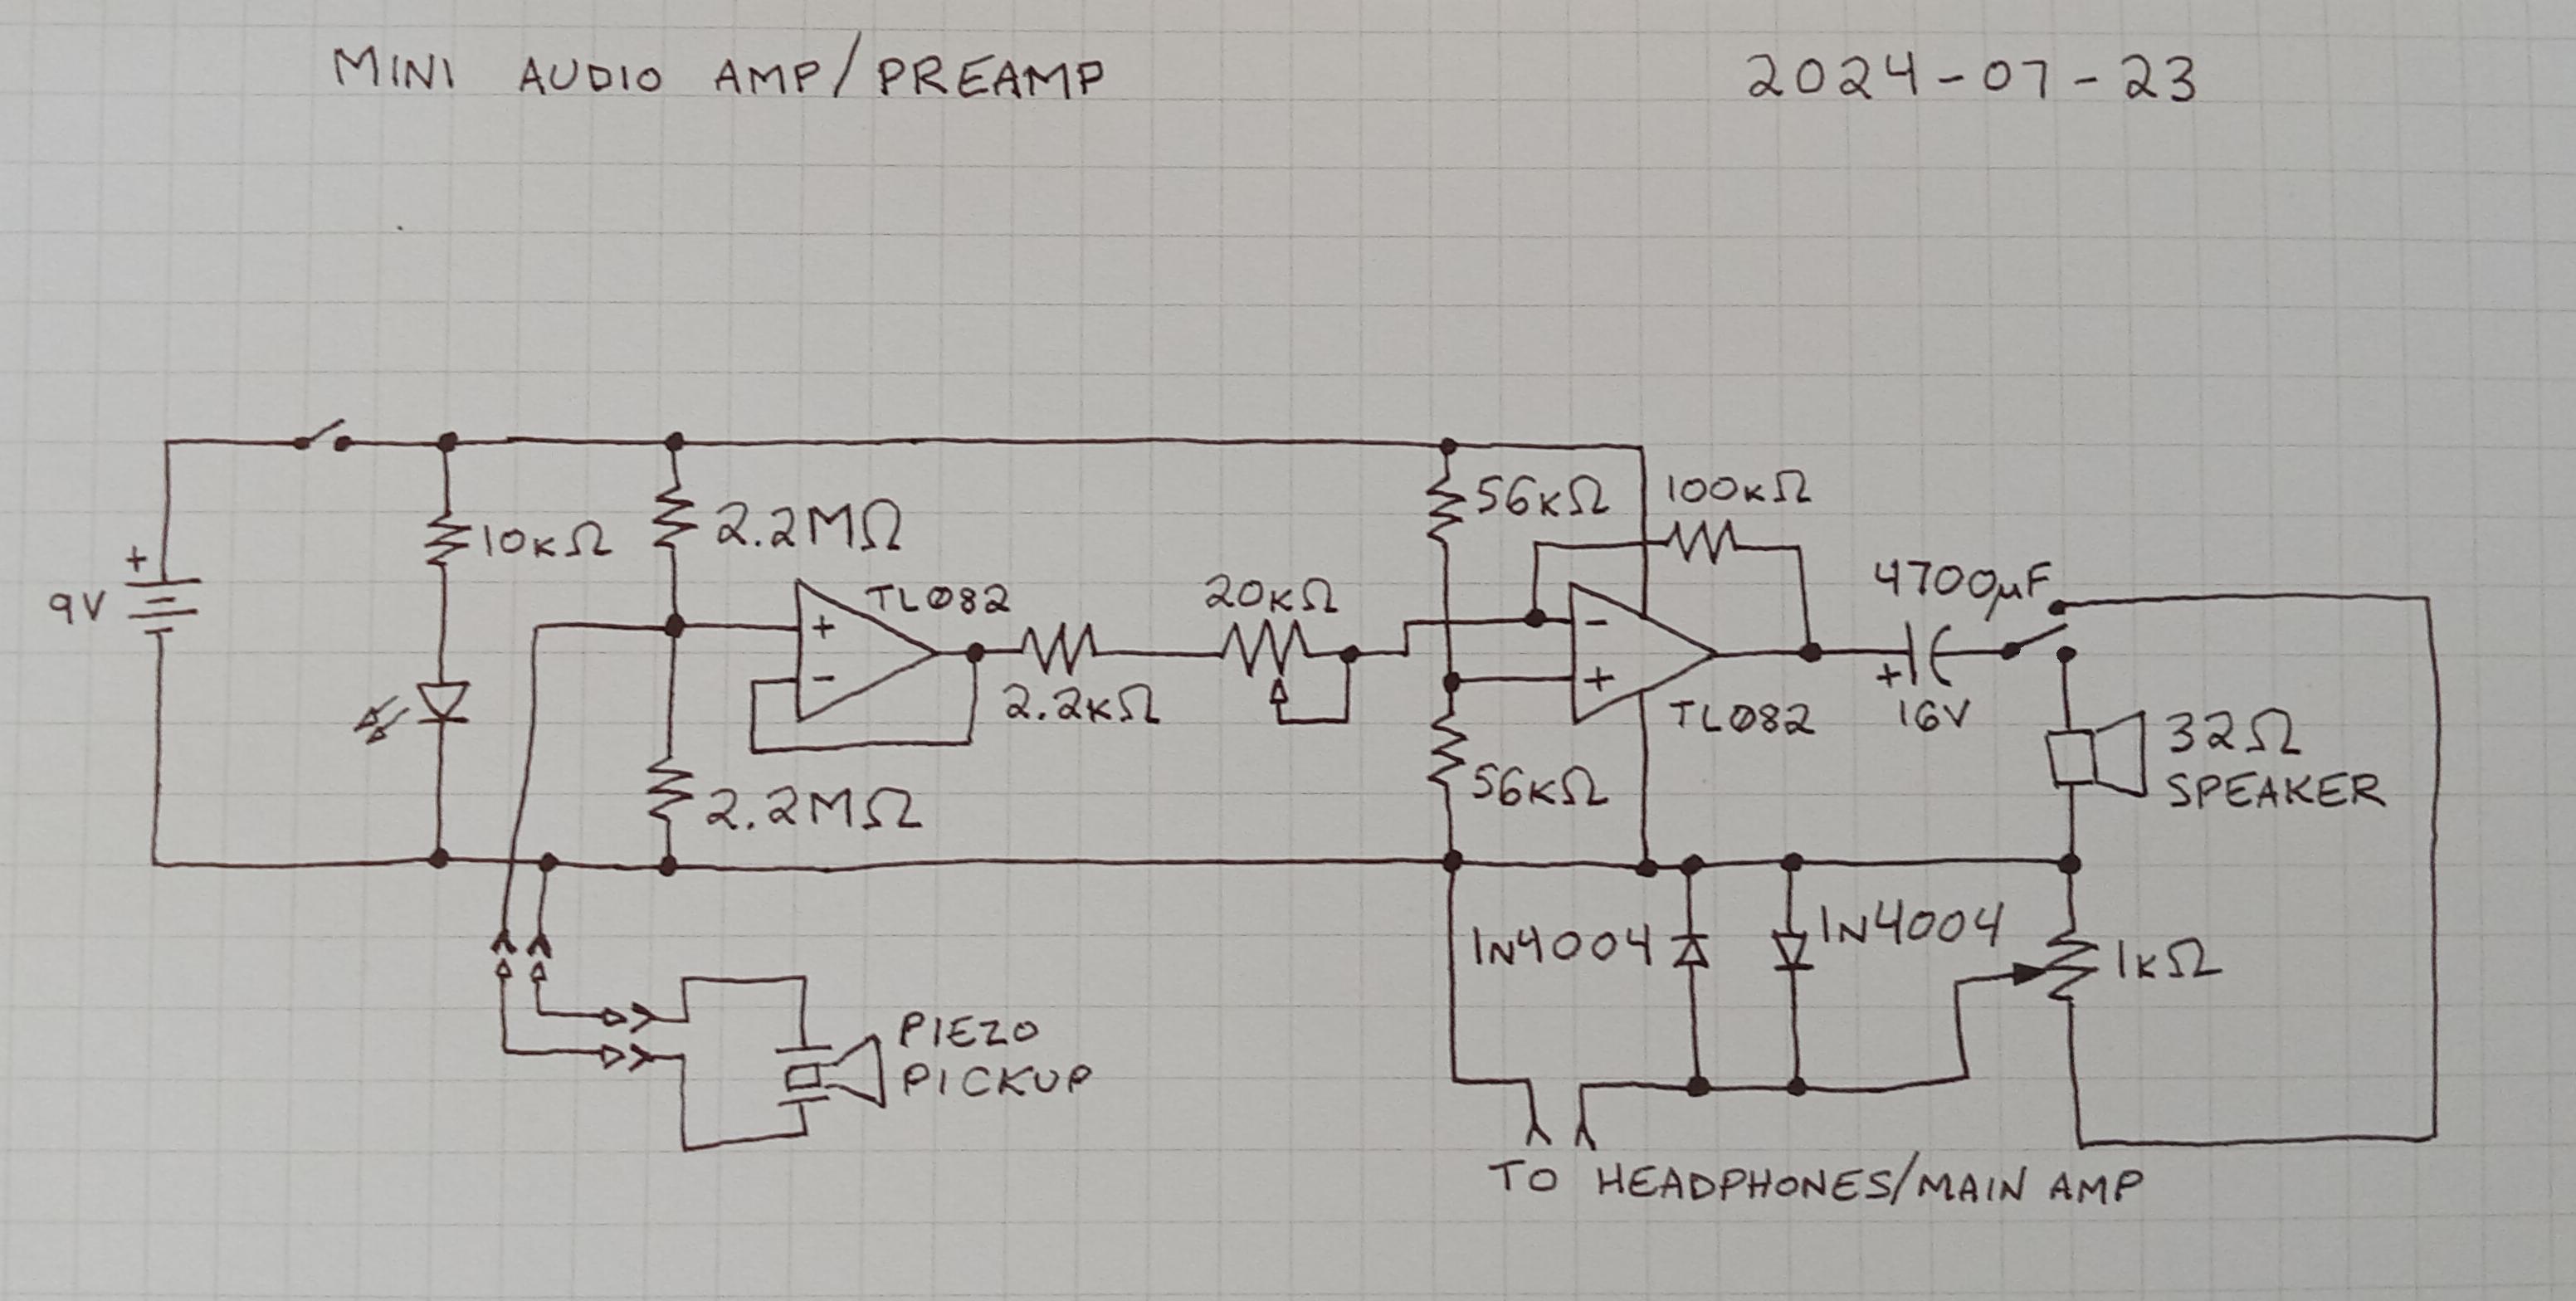 MINI AUDIO AMP/PREAMP
2024-07-23
+
9V
10KΩ
2.2MΩ
2.2MΩ
TL082
+
-
2.2KΩ
20KΩ
56KΩ
56KΩ
100KΩ
-
+
TL082
4700μF
+
16V
32Ω
SPEAKER
1N4004
1N4004
1KΩ
PIEZO
PICKUP
TO HEADPHONES/MAIN AMP